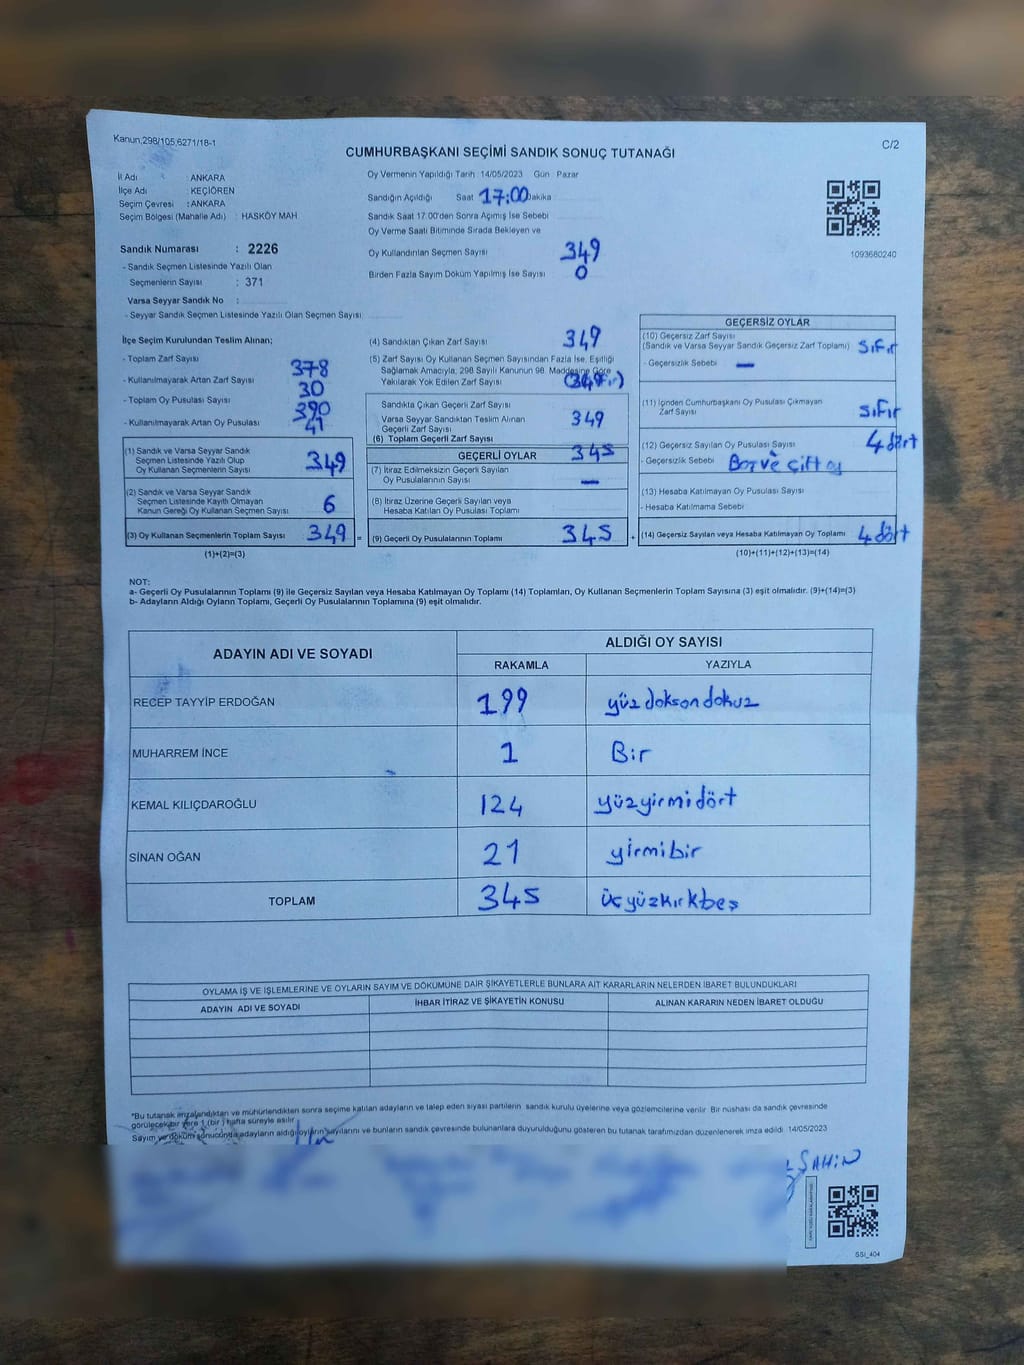 Kanun,298/105,6271/18-1
C/2
CUMHURBAŞKANI SEÇİMİ SANDIK SONUÇ TUTANAĞI
İl Adı : ANKARA
İlçe Adı : KEÇİÖREN
Seçim Çevresi : ANKARA
Seçim Bölgesi (Mahalle Adı) : HASKÖY MAH
Sandık Numarası : 2226
- Sandık Seçmen Listesinde Yazılı Olan
Seçmenlerin Sayısı : 371
Varsa Seyyar Sandık No :
- Seyyar Sandık Seçmen Listesinde Yazılı Olan Seçmen Sayısı:
Oy Vermenin Yapıldığı Tarih 14/05/2023 Gün Pazar
Sandığın Açıldığı Saat 17:00 Dakika
Sandık Saat 17.00'den Sonra Açımış İse Sebebi
Oy Verme Saati Bitiminde Sırada Bekleyen ve
Oy Kullandırılan Seçmen Sayısı 349
Birden Fazla Sayım Döküm Yapılmış İse Sayısı 0
1093680240
İlçe Seçim Kurulundan Teslim Alınan;
- Toplam Zarf Sayısı 378
- Kullanılmayarak Artan Zarf Sayısı 30
- Toplam Oy Pusulası Sayısı 390
- Kullanılmayarak Artan Oy Pusulası 41
(1) Sandık ve Varsa Seyyar Sandık
Seçmen Listesinde Yazılı Olup
Oy Kullanan Seçmenlerin Sayısı 349
(2) Sandık ve Varsa Seyyar Sandık
Seçmen Listesinde Kayıtlı Olmayan
Kanun Gereği Oy Kullanan Seçmen Sayısı 6
(3) Oy Kullanan Seçmenlerin Toplam Sayısı 349
(1)+(2)=(3)
(4) Sandıktan Çıkan Zarf Sayısı 349
(5) Zarf Sayısı Oy Kullanan Seçmen Sayısından Fazla İse, Eşitliği
Sağlamak Amacıyla, 298 Sayılı Kanunun 98. Maddesine Göre
Yakılarak Yok Edilen Zarf Sayısı
Sandıkta Çıkan Geçerli Zarf Sayısı
Varsa Seyyar Sandıktan Teslim Alınan
Geçerli Zarf Sayısı 349
(6) Toplam Geçerli Zarf Sayısı
GEÇERLİ OYLAR 345
(7) İtiraz Edilmeksizin Geçerli Sayılan
Oy Pusulalarının Sayısı —
(8) İtiraz Üzerine Geçerli Sayılan veya
Hesaba Katılan Oy Pusulası Toplamı
= (9) Geçerli Oy Pusulalarının Toplamı 345
GEÇERSİZ OYLAR
(10) Geçersiz Zarf Sayısı
(Sandık ve Varsa Seyyar Sandık Geçersiz Zarf Toplamı) Sıfır
- Geçersizlik Sebebi —
(11) İçinden Cumhurbaşkanı Oy Pusulası Çıkmayan
Zarf Sayısı sıfır
(12) Geçersiz Sayılan Oy Pusulası Sayısı 4 dört
- Geçersizlik Sebebi Boş ve Çift oy
(13) Hesaba Katılmayan Oy Pusulası Sayısı
- Hesaba Katılmama Sebebi
+ (14) Geçersiz Sayılan veya Hesaba Katılmayan Oy Toplamı 4 dört
(10)+(11)+(12)+(13)=(14)
NOT:
a- Geçerli Oy Pusulalarının Toplamı (9) ile Geçersiz Sayılan veya Hesaba Katılmayan Oy Toplamı (14) Toplamları, Oy Kullanan Seçmenlerin Toplam Sayısına (3) eşit olmalıdır. (9)+(14)=(3)
b- Adayların Aldığı Oyların Toplamı, Geçerli Oy Pusulalarının Toplamına (9) eşit olmalıdır.
ADAYIN ADI VE SOYADI
ALDIĞI OY SAYISI
RAKAMLA YAZIYLA
RECEP TAYYİP ERDOĞAN 199 yüz dokson dokuz
MUHARREM İNCE 1 Bir
KEMAL KILIÇDAROĞLU 124 yüzyirmidört
SİNAN OĞAN 21 yirmibir
TOPLAM 345 üçyüzkırkbeş
OYLAMA İŞ VE İŞLEMLERİNE VE OYLARIN SAYIM VE DÖKÜMÜNE DAİR ŞİKAYETLERLE BUNLARA AİT KARARLARIN NELERDEN İBARET BULUNDUKLARI
ADAYIN ADI VE SOYADI İHBAR İTİRAZ VE ŞİKAYETİN KONUSU ALINAN KARARIN NEDEN İBARET OLDUĞU
*Bu tutanak imzalandıktan ve mühürlendikten sonra seçime katılan adayların ve talep eden siyasi partilerin sandık kurulu üyelerine veya gözlemcilerine verilir. Bir nüshası da sandık çevresinde
görülecek bir yere 1 (bir) hafta süreyle asılır.
Sayım ve döküm sonucunda adayların aldığı oyların sayılarını ve bunların sandık çevresinde bulunanlara duyurulduğunu gösteren bu tutanak tarafımızdan düzenlenerek imza edildi. 14/05/2023
ŞAHİN
SSI_404